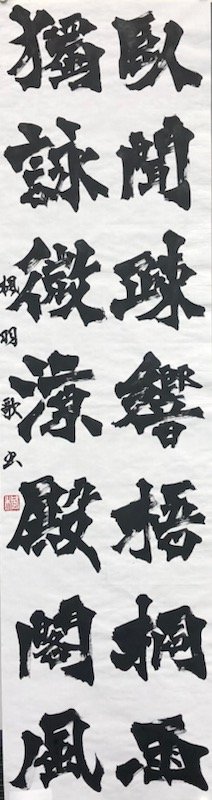 臥聞疎響梧桐雨
獨詠微涼殿閣風
楓羽歌出